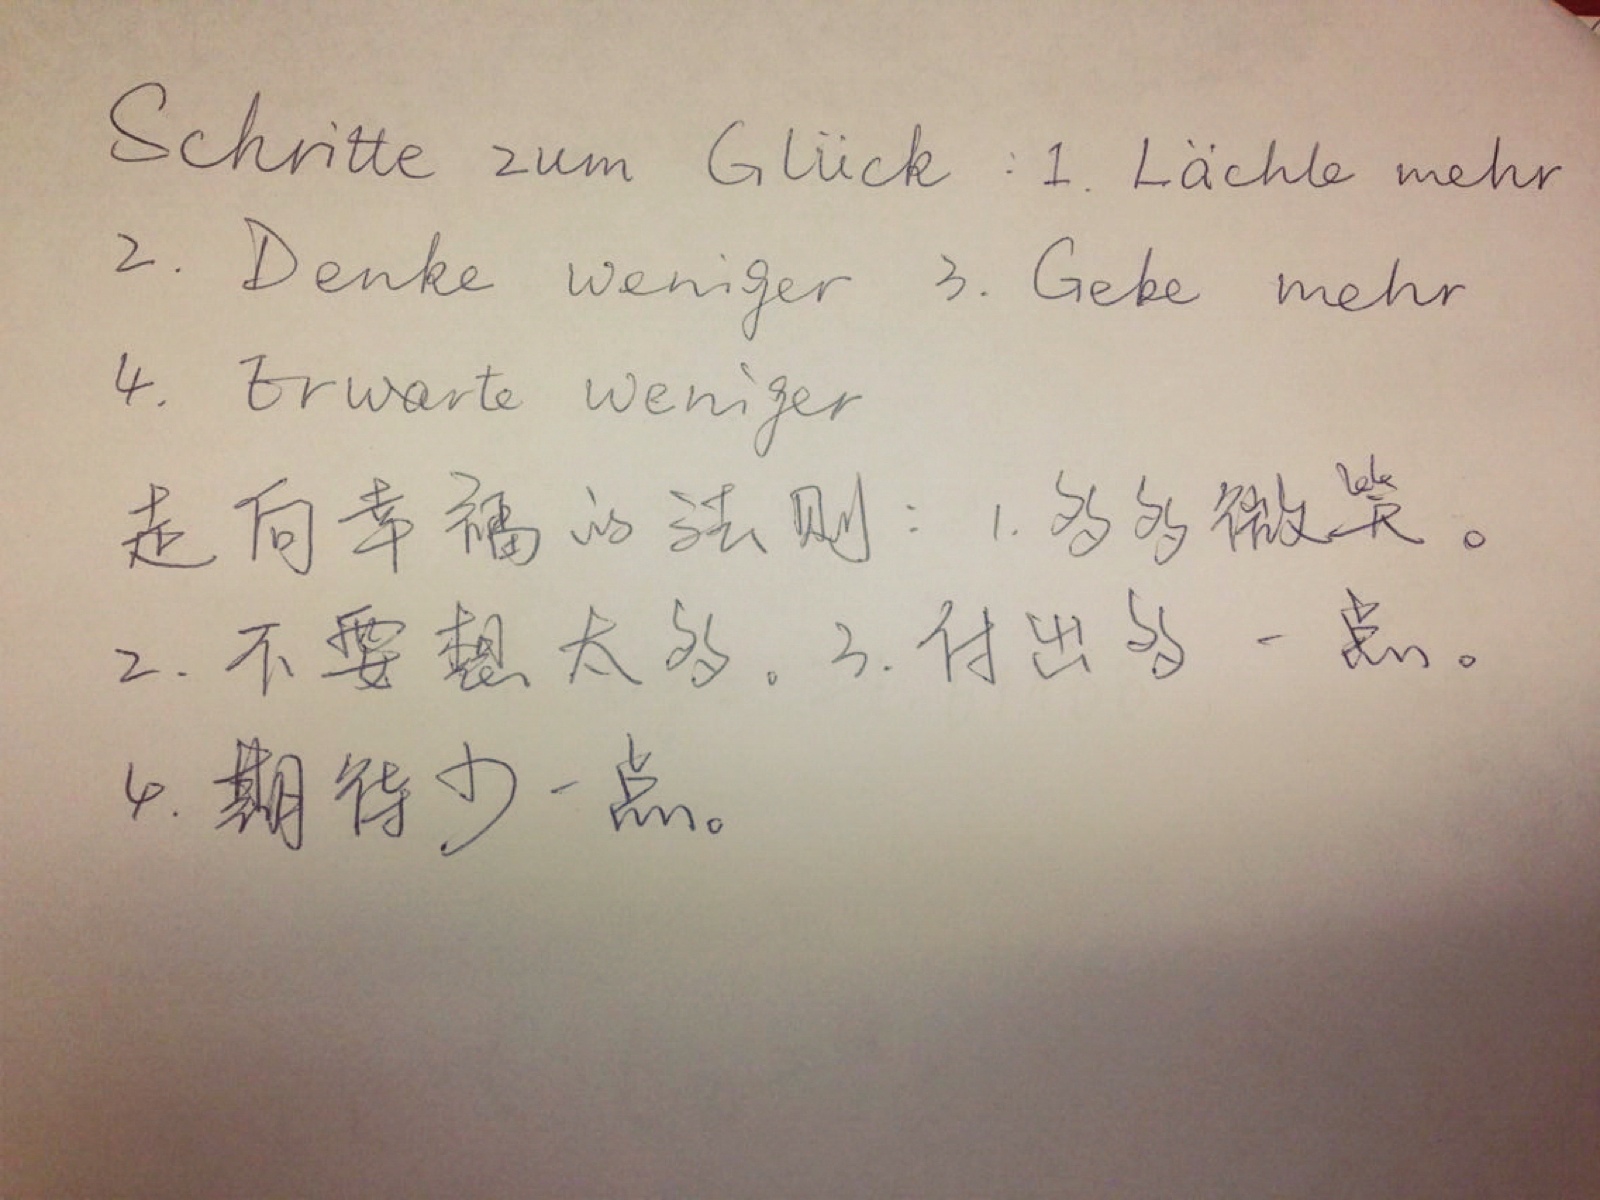 Schritte zum Glück : 1. Lächle mehr
2. Denke weniger 3. Gebe mehr
4. Erwarte weniger
走向幸福的法则：1. 多多微笑。
2. 不要想太多。3. 付出多一点。
4. 期待少一点。